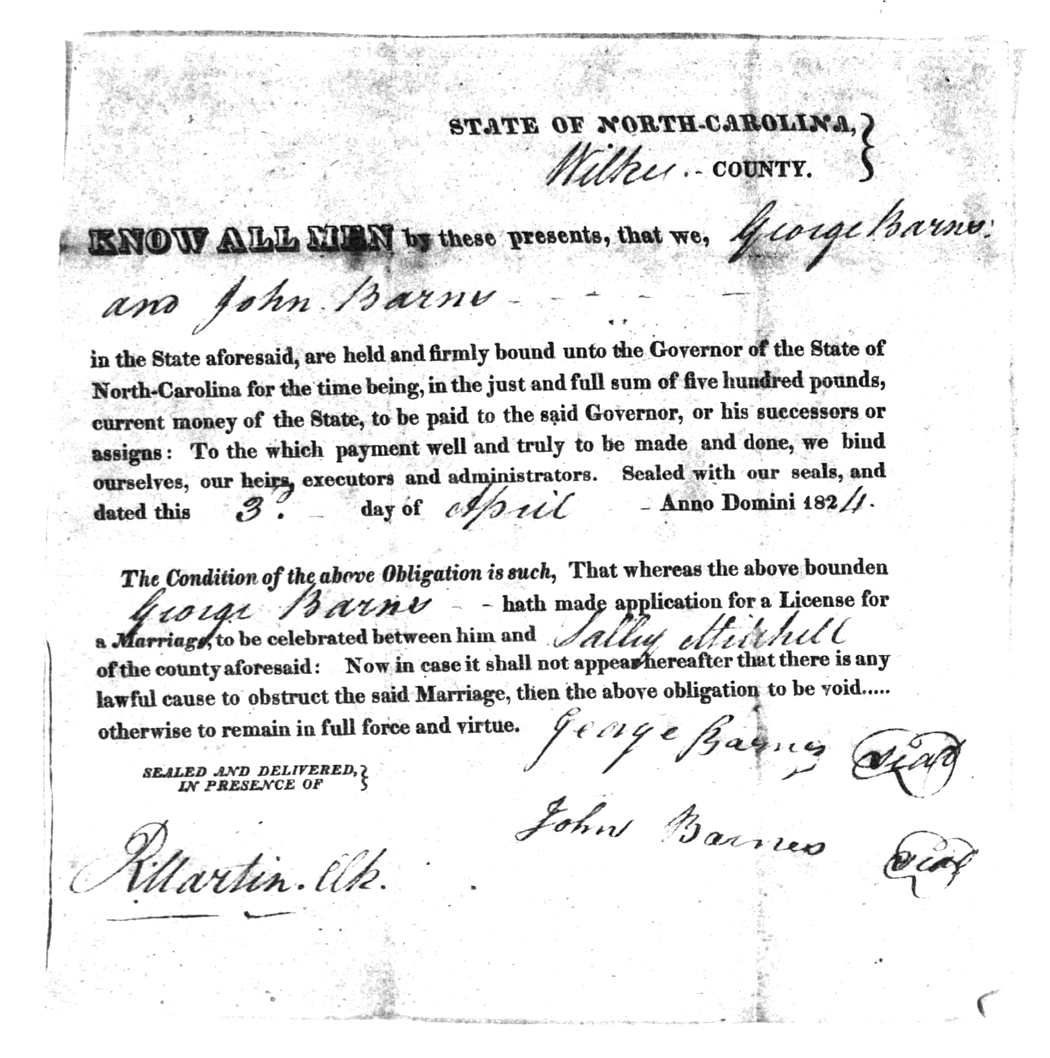 STATE OF NORTH-CAROLINA,
Wilkes COUNTY.
KNOW ALL MEN by these presents, that we, George Barns
and John Barns
in the State aforesaid, are held and firmly bound unto the Governor of the State of
North-Carolina for the time being, in the just and full sum of five hundred pounds,
current money of the State, to be paid to the said Governor, or his successors or
assigns: To the which payment well and truly to be made and done, we bind
ourselves, our heirs, executors and administrators. Sealed with our seals, and
dated this 3d. day of April Anno Domini 1824.
The Condition of the above Obligation is such, That whereas the above bounden
George Barns - - hath made application for a License for
a Marriage, to be celebrated between him and Salley Mitchell
of the county aforesaid: Now in case it shall not appear hereafter that there is any
lawful cause to obstruct the said Marriage, then the above obligation to be void.....
otherwise to remain in full force and virtue.
George Barnes seal
SEALED AND DELIVERED,
IN PRESENCE OF
John Barnes seal
R. Martin. Clk.